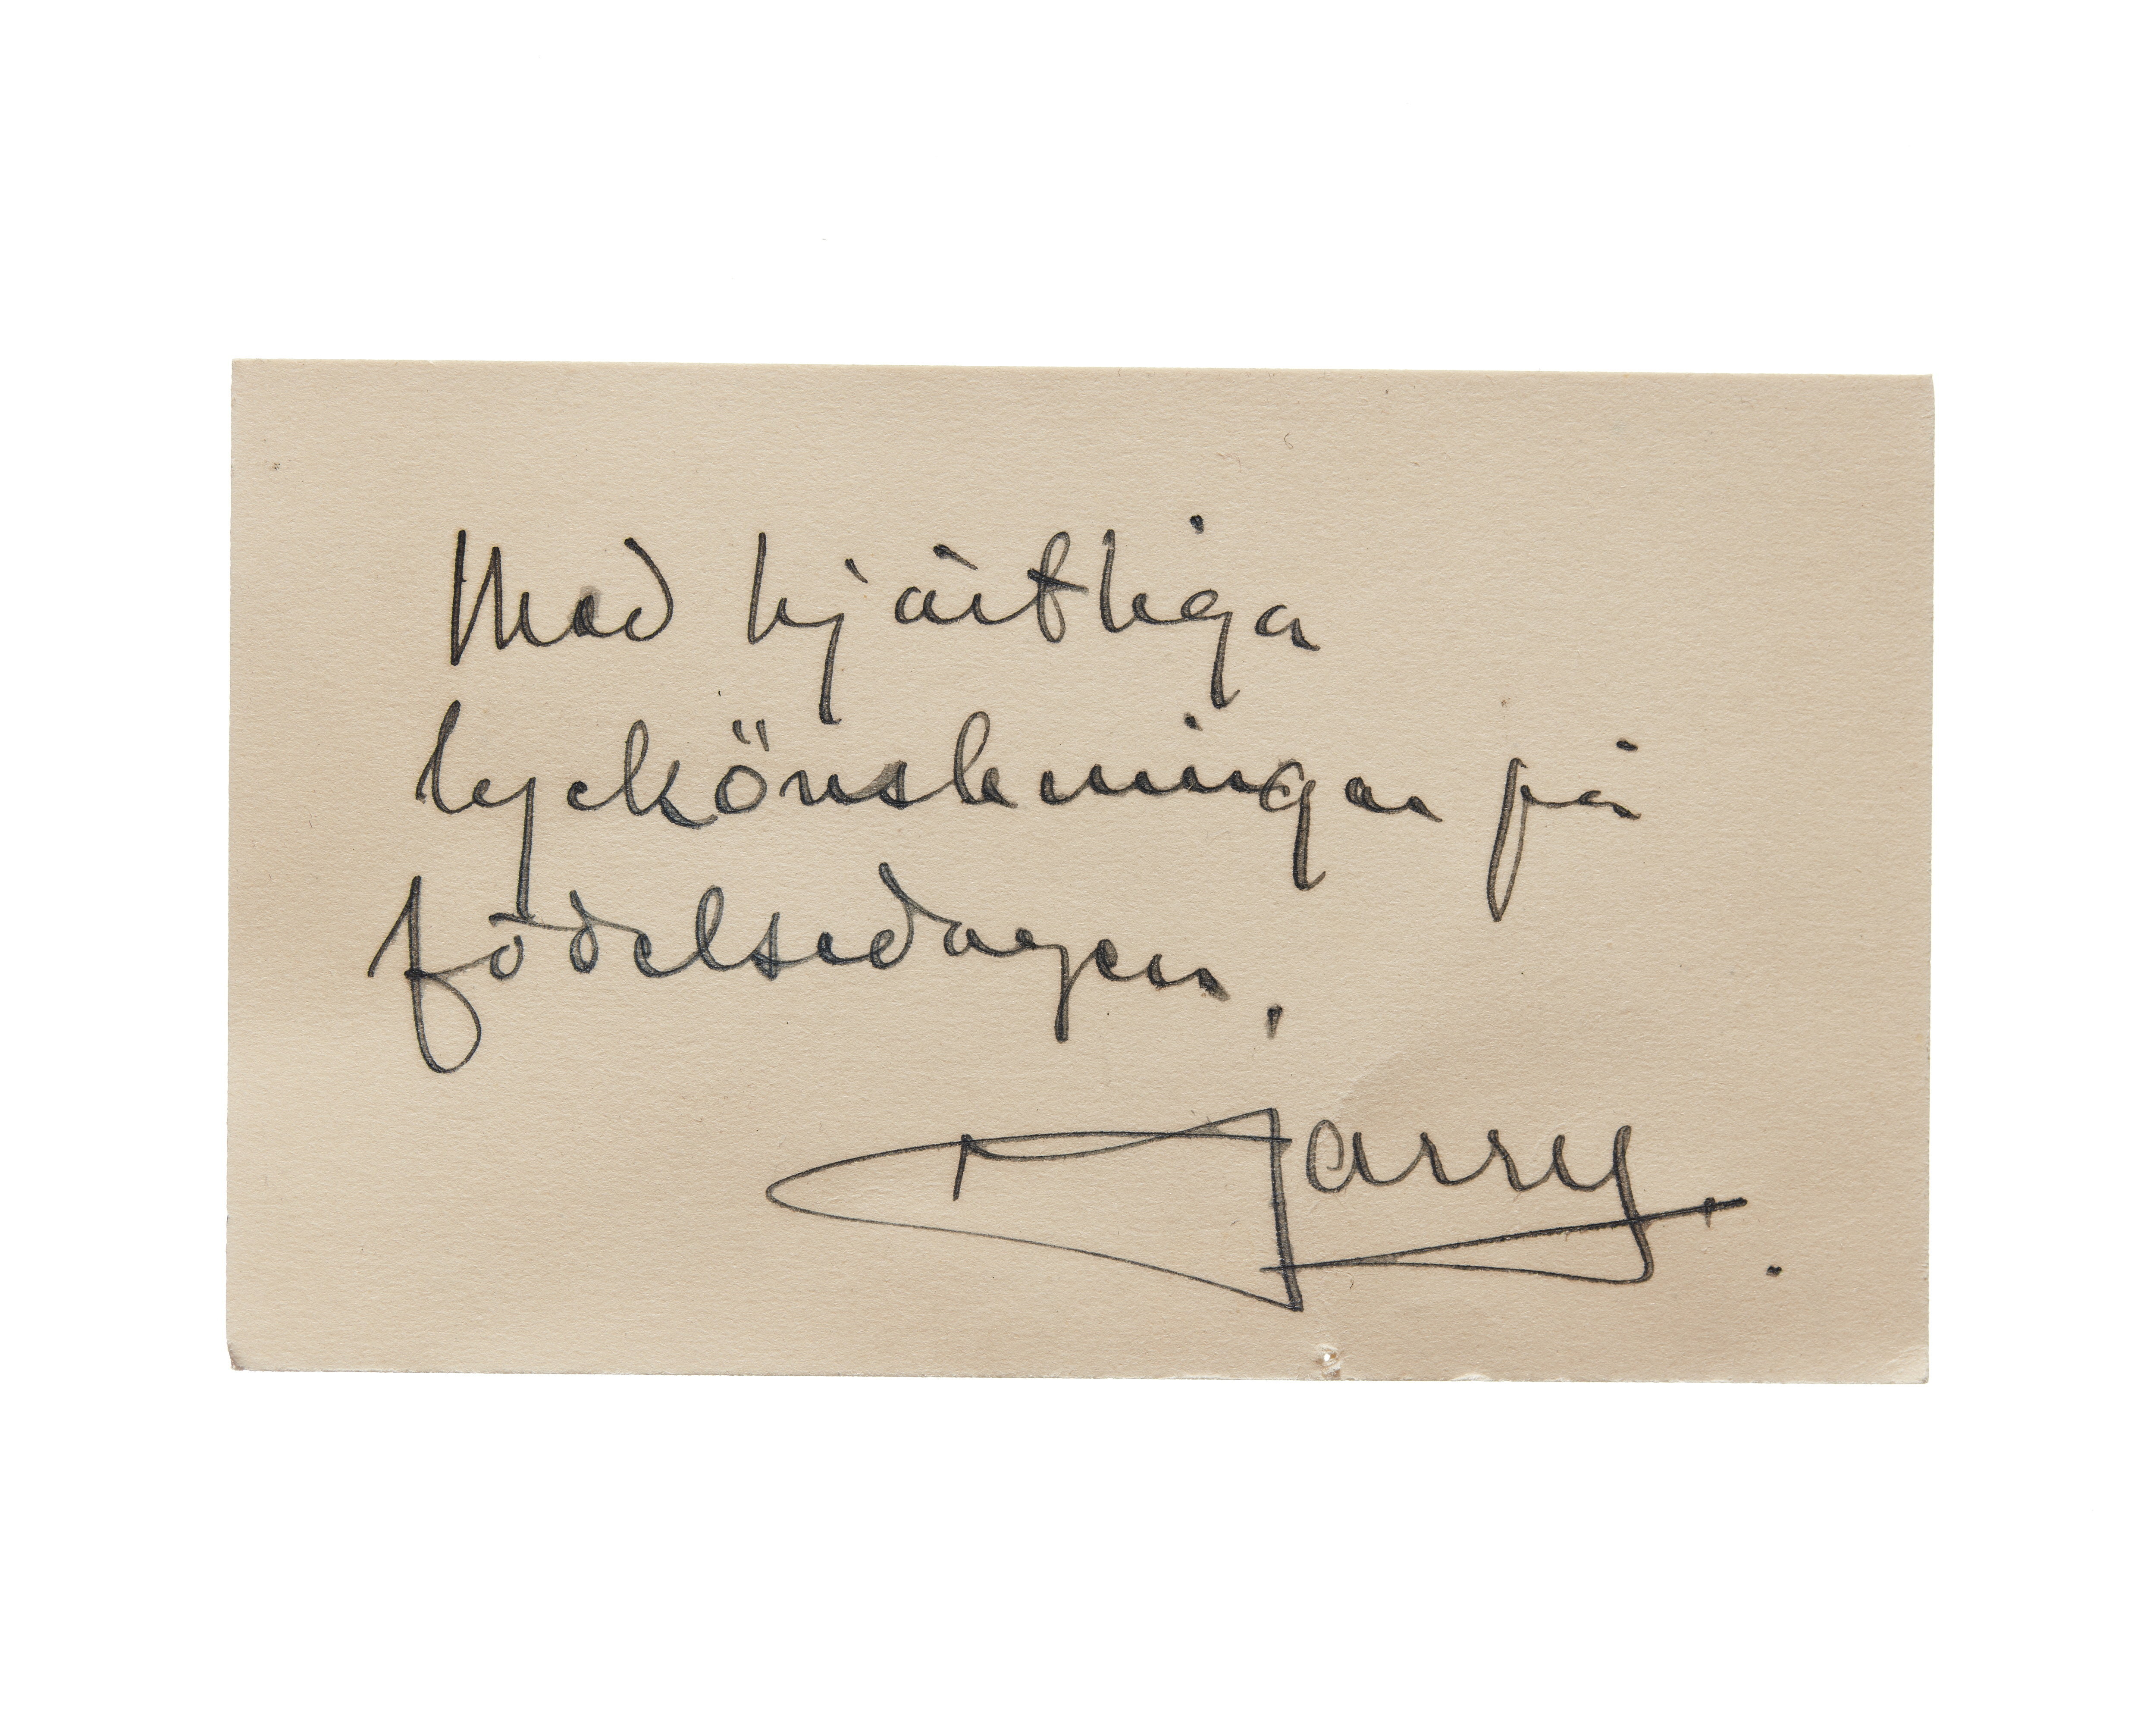 Med hjärtliga
lyckönskningar på
födelsedagen.
Harry.